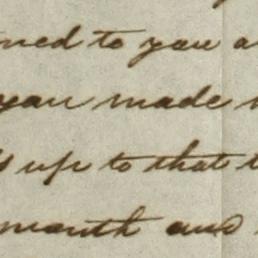 to you
you made
up to that
month and